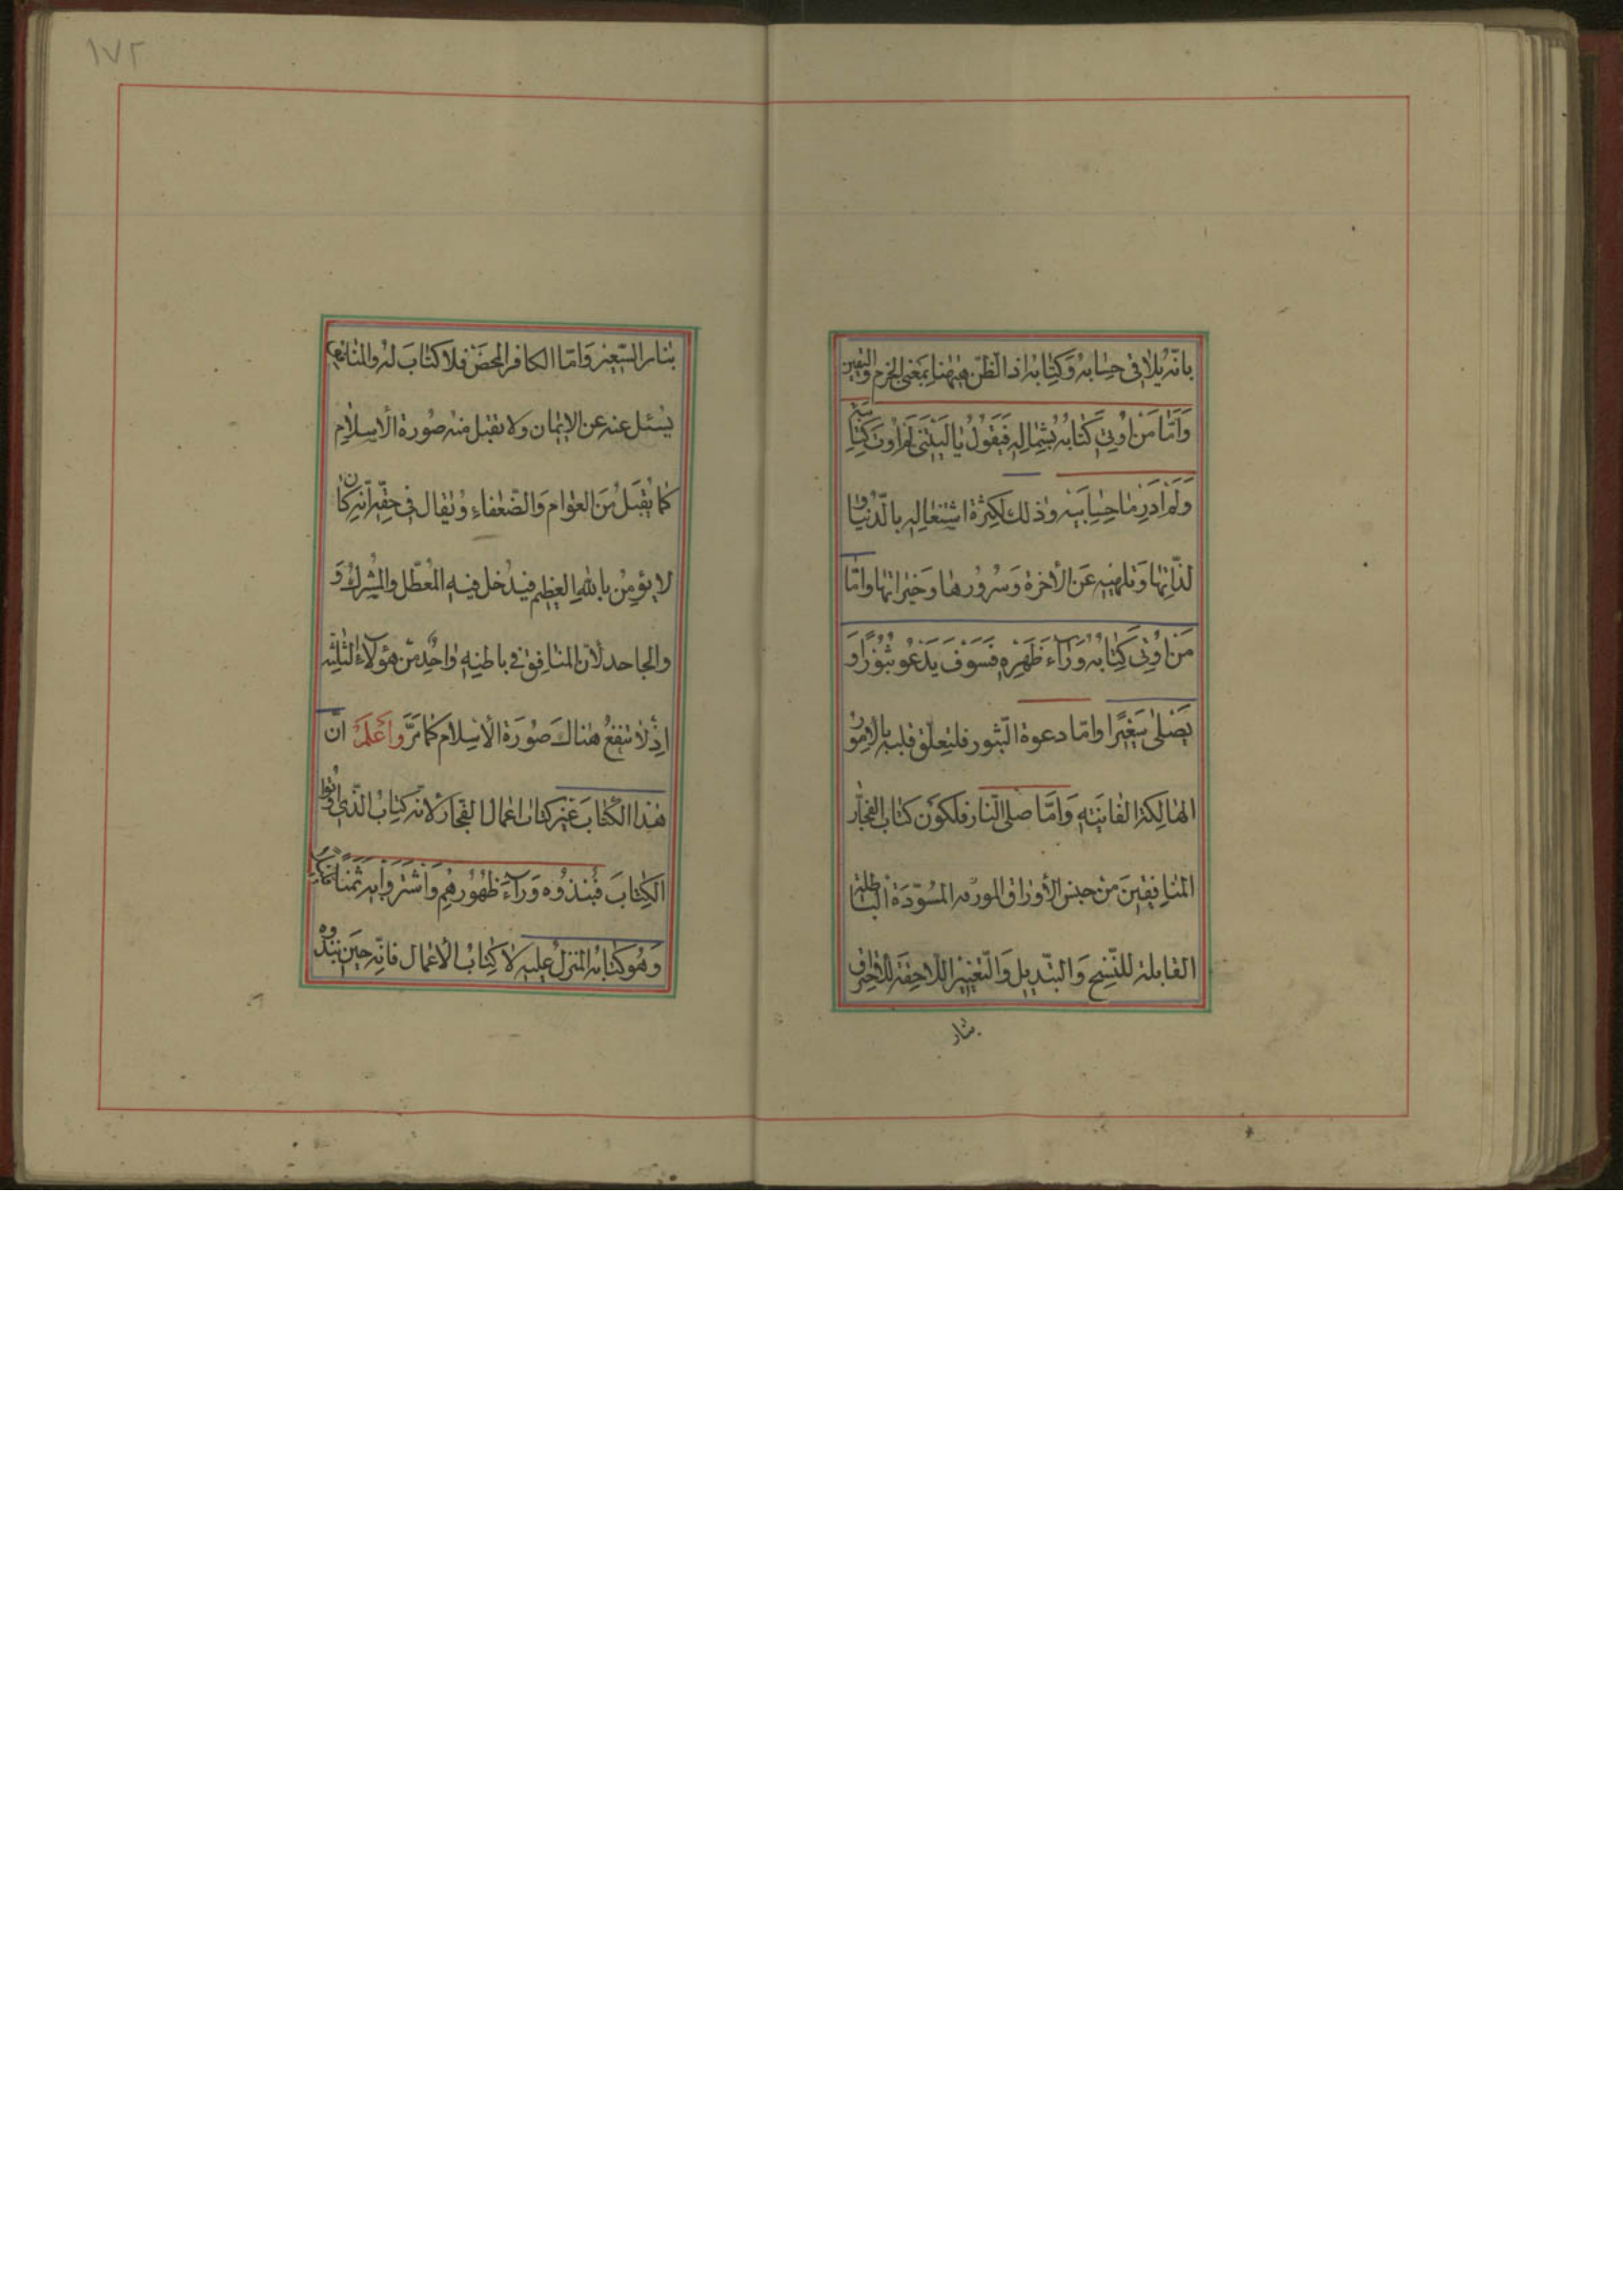 ١٧٢
بانّه يلاقى حسابه وَكتابه اذ الظّن هيهنا بمعنى الجزم واليقين
وَامّا مَن اوُتِىَ كتابه بشِماله فَيَقوُلُ يا ليتَنى لَم اوُتَ كِتابيَه
وَلَم ادَرِ ما حِسابيَه وذلك لكثرة اشتغاله بالدّنيا و
لذّاتها وَتلهّيه عَن الأخرة وَسُرُورها وخيراتها وامّا
مَن اوُتِى كِتابه وَرٰاءَ ظَهره فَسَوفَ يَدعُو ثبُوُرًا وَ
يَصلى سَعيرًا وامّا دعوة الثّبور فلتعلّق قلبه بالامور
الهالكة الفانيته وَامّا صلى النّار فلكون كتاب الفجّار
المنافِقينَ من جنس الأوراق المسُوّدَة الباطلة
القابلة للنّسخ وَالتّبديل وَالتّغيير اللاحقة للاحتراق
بنار
بنار السّعير وَامّا الكافر المحَض فلا كتابَ له والمنافق
يسُئل عنه عن الايمان ولا تقبل منه صُورة الاسلام
كما يُقبَل مِنَ العوام وَالضّعفاء وَيقال فى حقّه انّه كان
لا يؤمِنُ باللهِ العَظيم فيدخُل فيه المُعطّل والمُشرك وَ
والجاحد لأنّ المنافق فى باطنه واحِد من هؤلاء الثلثة
اِذ لا تنفعُ هناكَ صُورَة الأسلام كما مَرّ وَاعلَم انّ
هذا الكتابَ غير كتاب اعمال الفجار لانّه كِتابُ الذّى اوُتوا
الكِتابَ فَنبذُوه وَرٰاءَ ظهُوُرهِم وَاشتَرَوا به ثَمنًا
وَهُوَ كتابه المنزلُ عليه لا كِتابُ الأعمال فانّه حينَ نبذوه